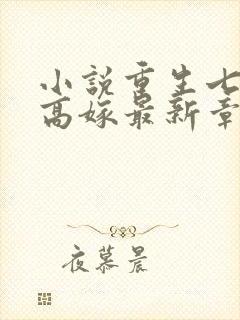 小説重生七
高嫁最新章
夜慕晨